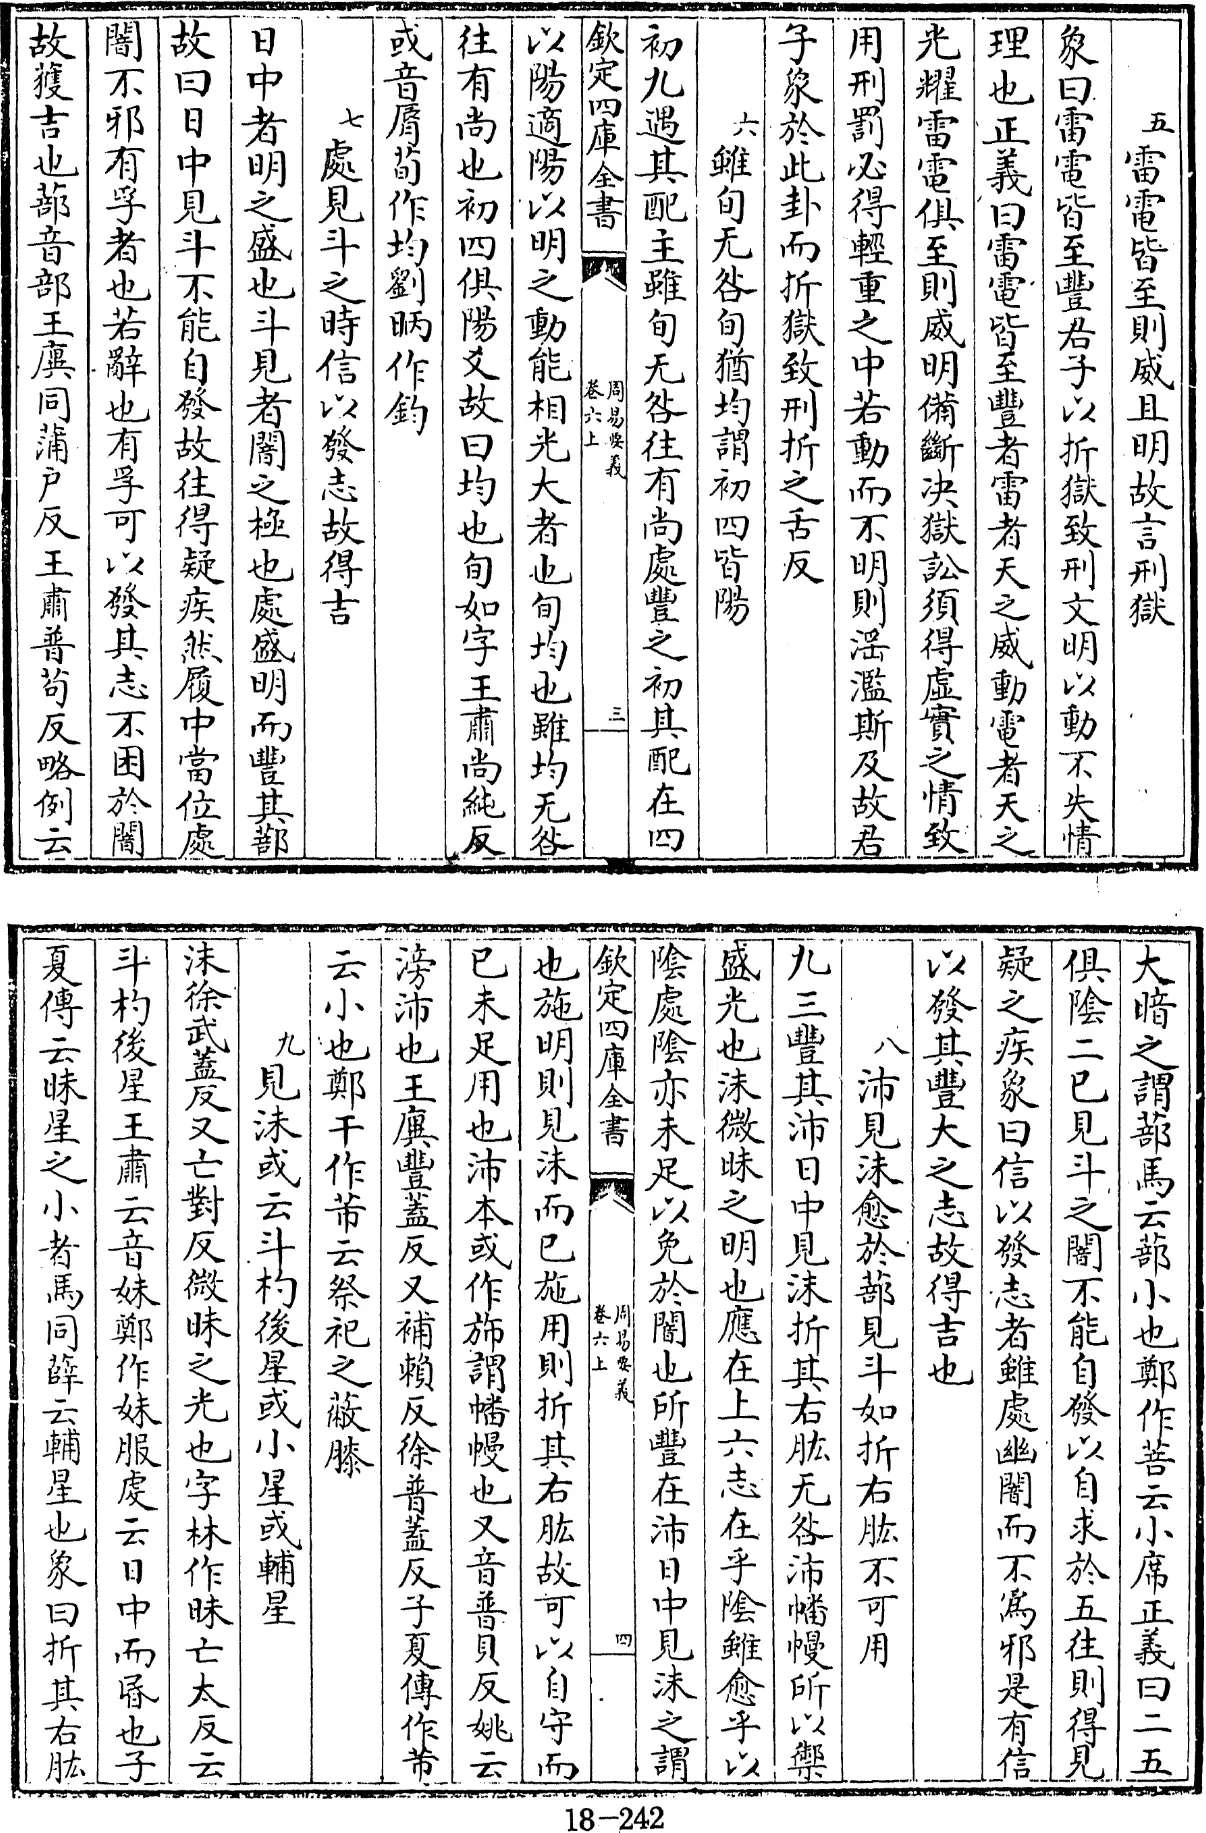 五雷電皆至則威且明故言刑獄
象曰雷電皆至豐君子以折獄致刑文明以動不失情
理也正義曰雷電皆至豐者雷者天之威動電者天之
光耀雷電俱至則威明備斷决獄訟須得虛實之情致
用刑罰必得輕重之中若動而不明則淫濫斯及故君
子象於此卦而折獄致刑折之舌反
六雖旬无咎旬猶均謂初四皆陽
初九遇其配主雖旬无咎往有尚處豐之初其配在四
欽定四庫全書
周易要義
卷六上
三
以陽適陽以明之動能相光大者也旬均也雖均无咎
往有尚也初四俱陽爻故曰均也旬如字王肅尚純反
或音脣荀作均劉昞作鈞
七處見斗之時信以發志故得吉
日中者明之盛也斗見者闇之極也處盛明而豐其蔀
故曰日中見斗不能自發故往得疑疾然履中當位處
闇不邪有孚者也若辭也有孚可以發其志不困於闇
故獲吉也蔀音部王廙同蒲戶反王肅普苟反略例云
大暗之謂蔀馬云蔀小也鄭作菩云小席正義曰二五
俱陰二已見斗之闇不能自發以自求於五往則得見
疑之疾象曰信以發志者雖處幽闇而不為邪是有信
以發其豐大之志故得吉也
八沛見沬愈於蔀見斗如折右肱不可用
九三豐其沛日中見沬折其右肱无咎沛幡幔所以禦
盛光也沬微昧之明也應在上六志在乎陰雖愈乎以
陰處陰亦未足以免於闇也所豐在沛日中見沬之謂
欽定四庫全書
周易要義
卷六上
四
也施明則見沬而已施用則折其右肱故可以自守而
已未足用也沛本或作斾謂幡幔也又音普貝反姚云
滂沛也王廙豐蓋反又補賴反徐普蓋反子夏傳作芾
云小也鄭干作芾云祭祀之蔽膝
九見沬或云斗杓後星或小星或輔星
沬徐武蓋反又亡對反微昧之光也字林作昧亡太反云
斗杓後星王肅云音妹鄭作妹服虔云日中而昏也子
夏傳云昧星之小者馬同薛云輔星也象曰折其右肱
18-242